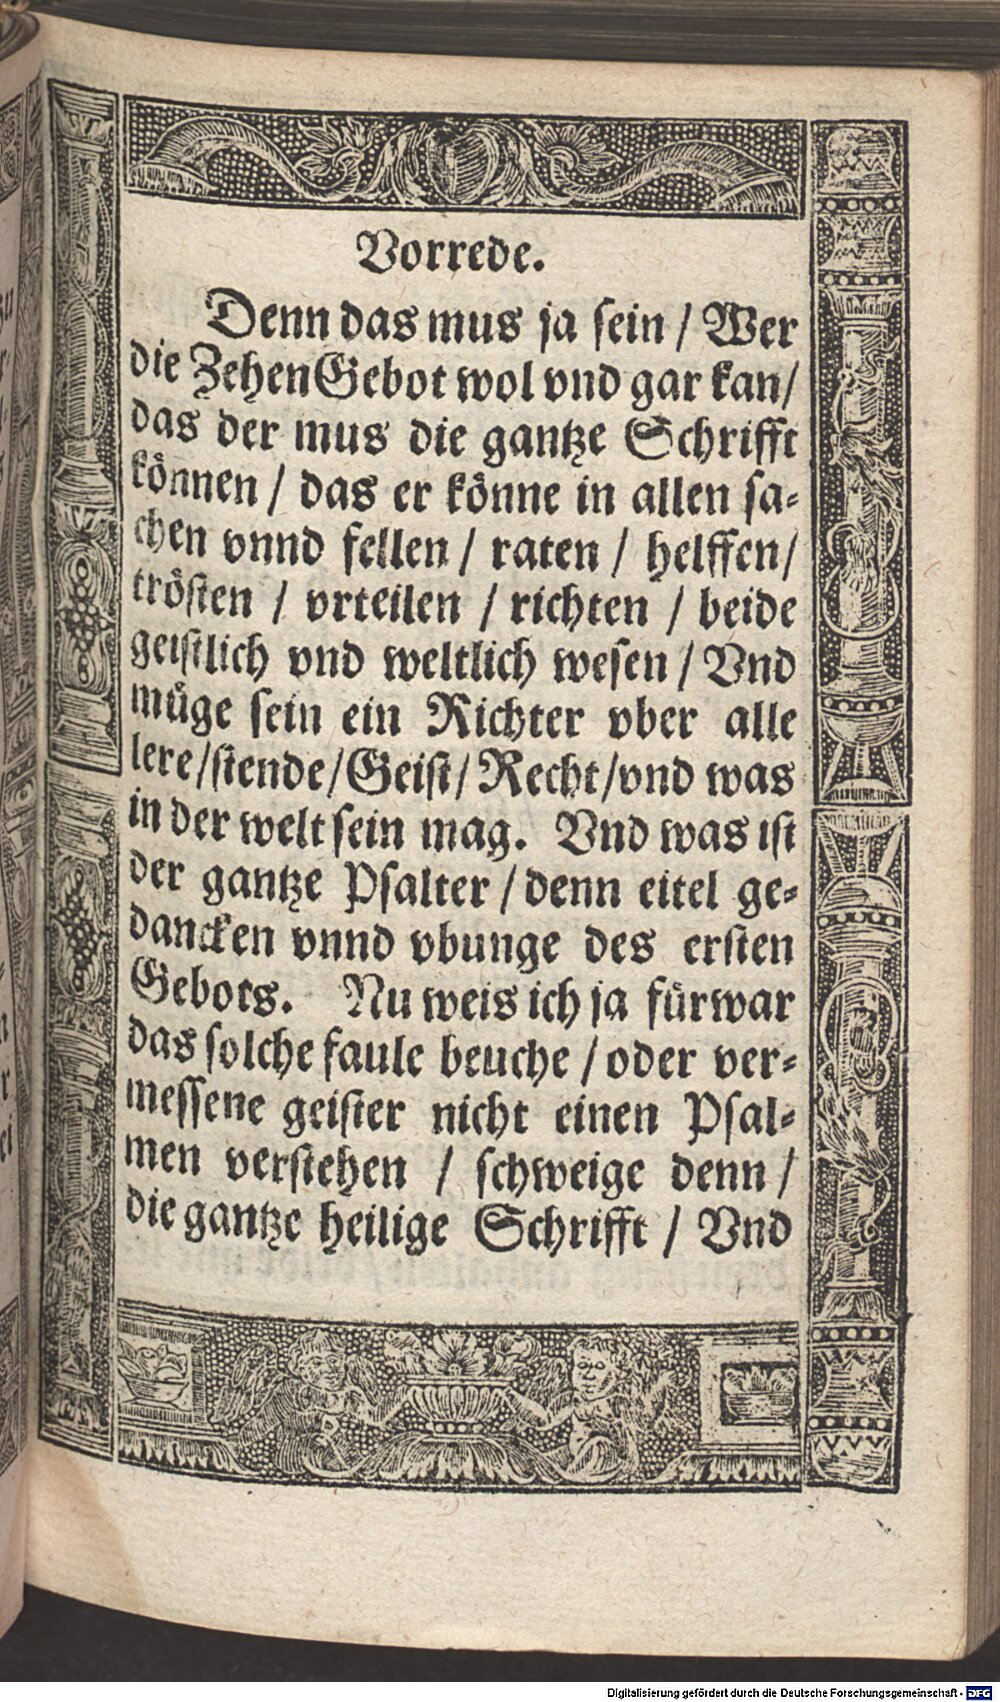 Vorrede.
Denn das mus ja sein / Wer
die Zehen Gebot wol vnd gar kan/
das der mus die gantze Schrifft
können / das er könne in allen sa-
chen vnnd fellen / raten / helffen/
trösten / vrteilen / richten / beide
geistlich vnd weltlich wesen / Vnd
müge sein ein Richter vber alle
lere/stende/Geist/Recht/vnd was
in der welt sein mag. Vnd was ist
der gantze Psalter / denn eitel ge-
dancken vnnd vbunge des ersten
Gebots. Nu weis ich ja fürwar
das solche faule beuche / oder ver-
messene geister nicht einen Psal-
men verstehen / schweige denn /
die gantze heilige Schrifft / Vnd
Digitalisierung gefördert durch die Deutsche Forschungsgemeinschaft - DFG